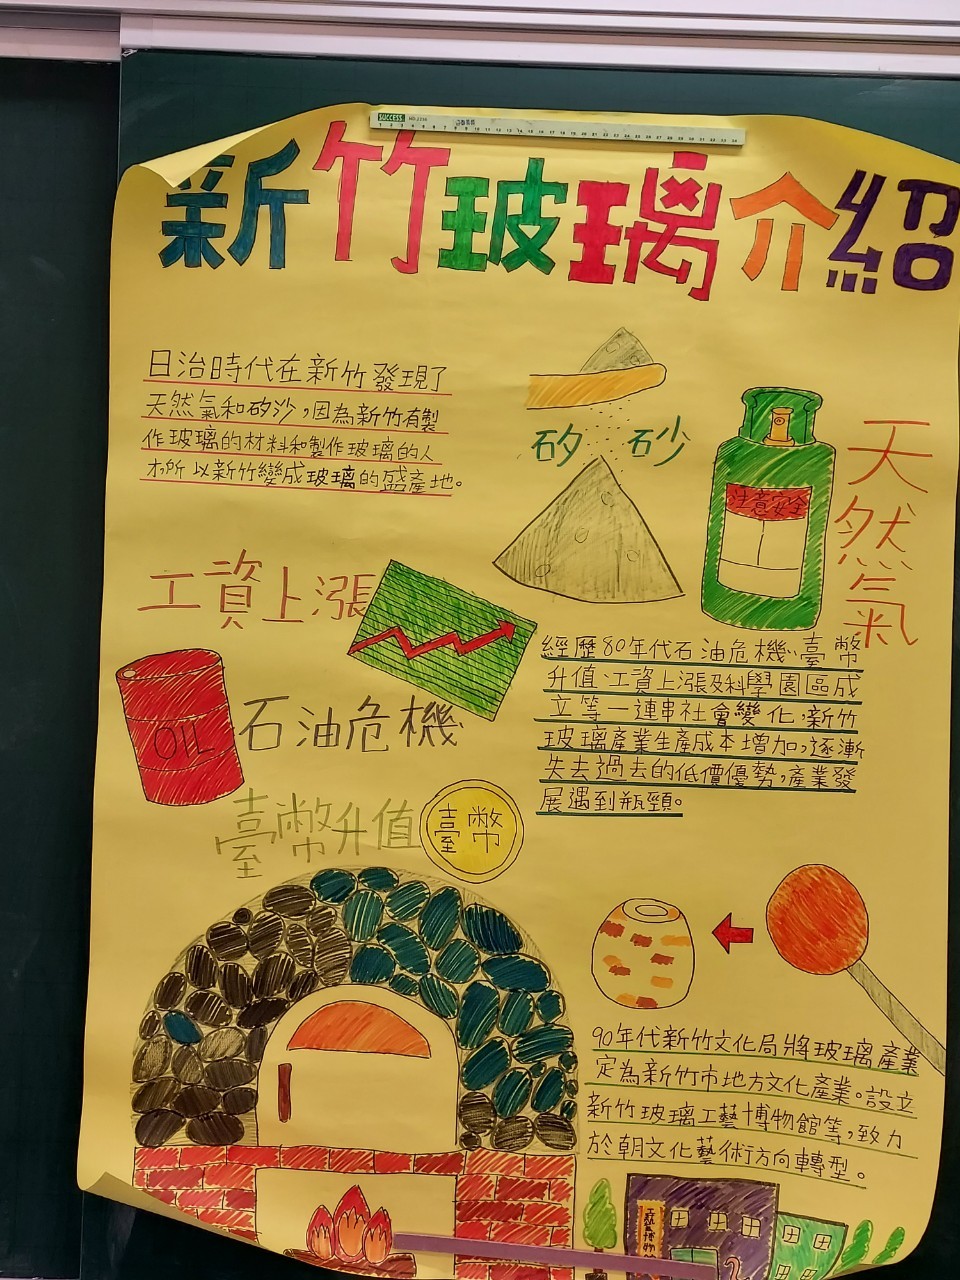 SUCCESS
新竹玻璃介紹
日治時代在新竹發現了
天然氣和矽沙，因為新竹有製
作玻璃的材料和製作玻璃的人
才所以新竹變成玻璃的盛產地。
矽砂
注意安全
天然氣
工資上漲
OIL
石油危機
臺幣升值
臺幣
經歷80年代石油危機、臺幣
升值、工資上漲及科學園區成
立等一連串社會變化，新竹
玻璃產業生產成本增加，逐漸
失去過去的低價優勢，產業發
展遇到瓶頸。
90年代新竹文化局將玻璃產業
定為新竹市地方文化產業。設立
新竹玻璃工藝博物館等，致力
於朝文化藝術方向轉型。